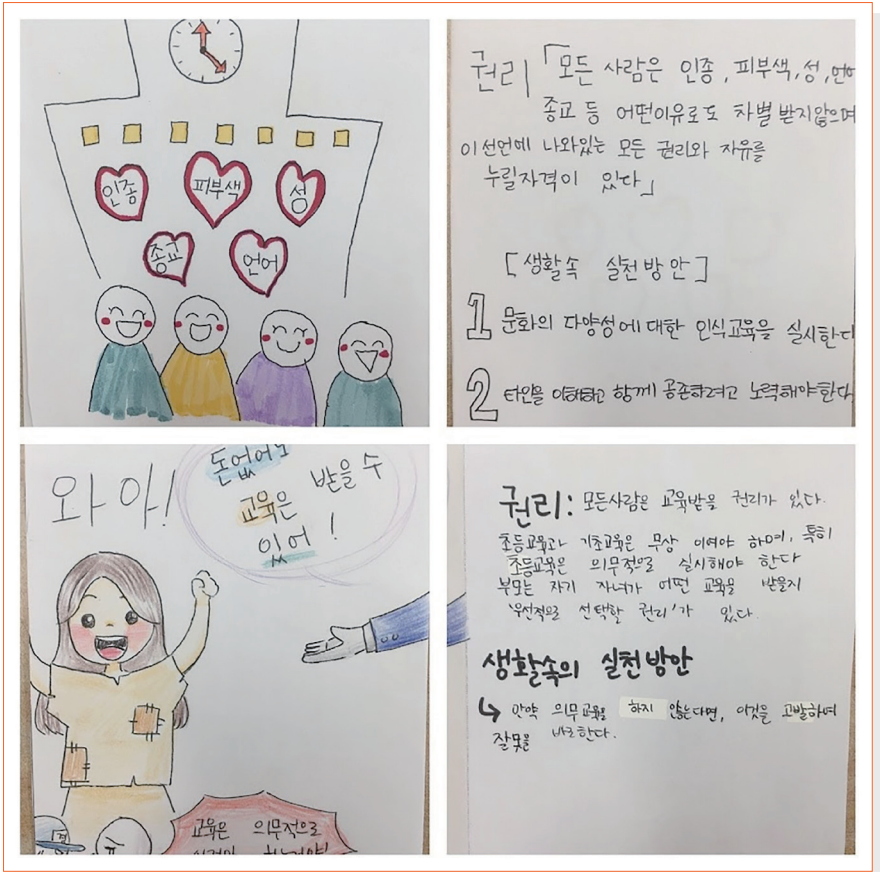 인종
피부색
성
종교
언어
권리 「모든 사람은 인종, 피부색, 성, 언어
종교 등 어떤이유로도 차별 받지않으며
이 선언에 나와있는 모든 권리와 자유를
누릴자격이 있다」
[생활속 실천방안]
1 문화의 다양성에대한 인식교육을 실시한다
2 타인을 이해하고 함께 공존하려고 노력해야한다
와 아!
돈없어도
교육은 받을 수
있어!
교육은 의무적으로
권리: 모든사람은 교육받을 권리가 있다.
초등교육과 기초교육은 무상 이여야 하며, 특히
초등교육은 의무적으로 실시해야 한다
부모는 자기 자녀가 어떤 교육을 받을지
'우선적으로 선택할 권리'가 있다.
생활속의 실천방안
↳ 만약 의무교육을 하지 않는다면, 이것을 고발하여
잘못을 바로한다.